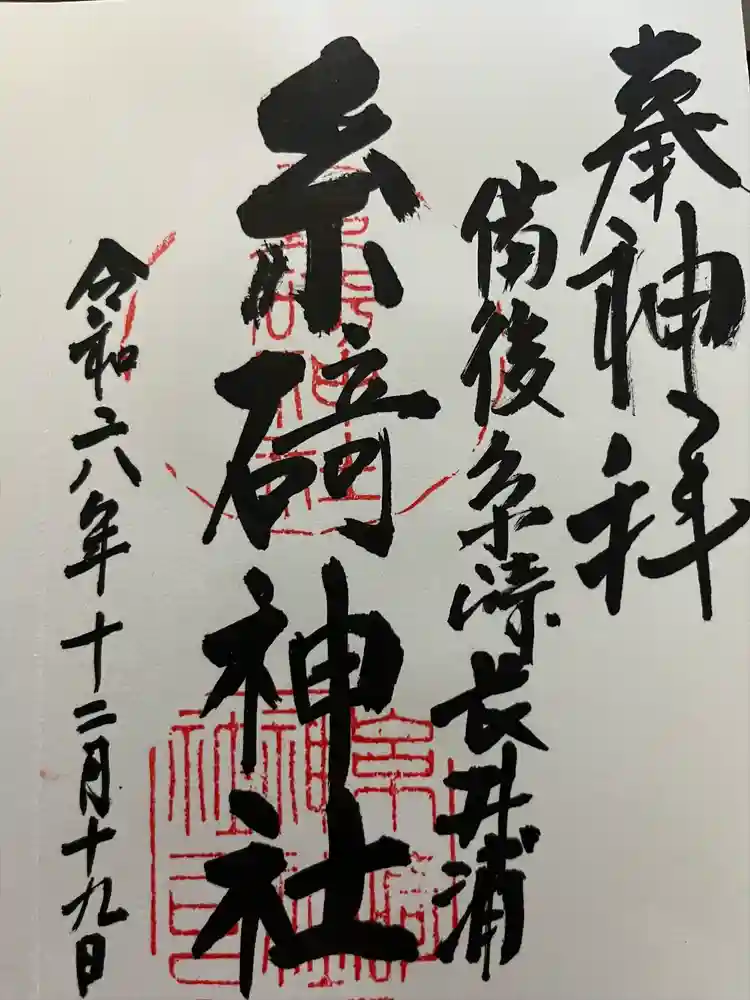 奉神拝
備後糸崎長井浦
糸碕神社
令和六年十二月十九日